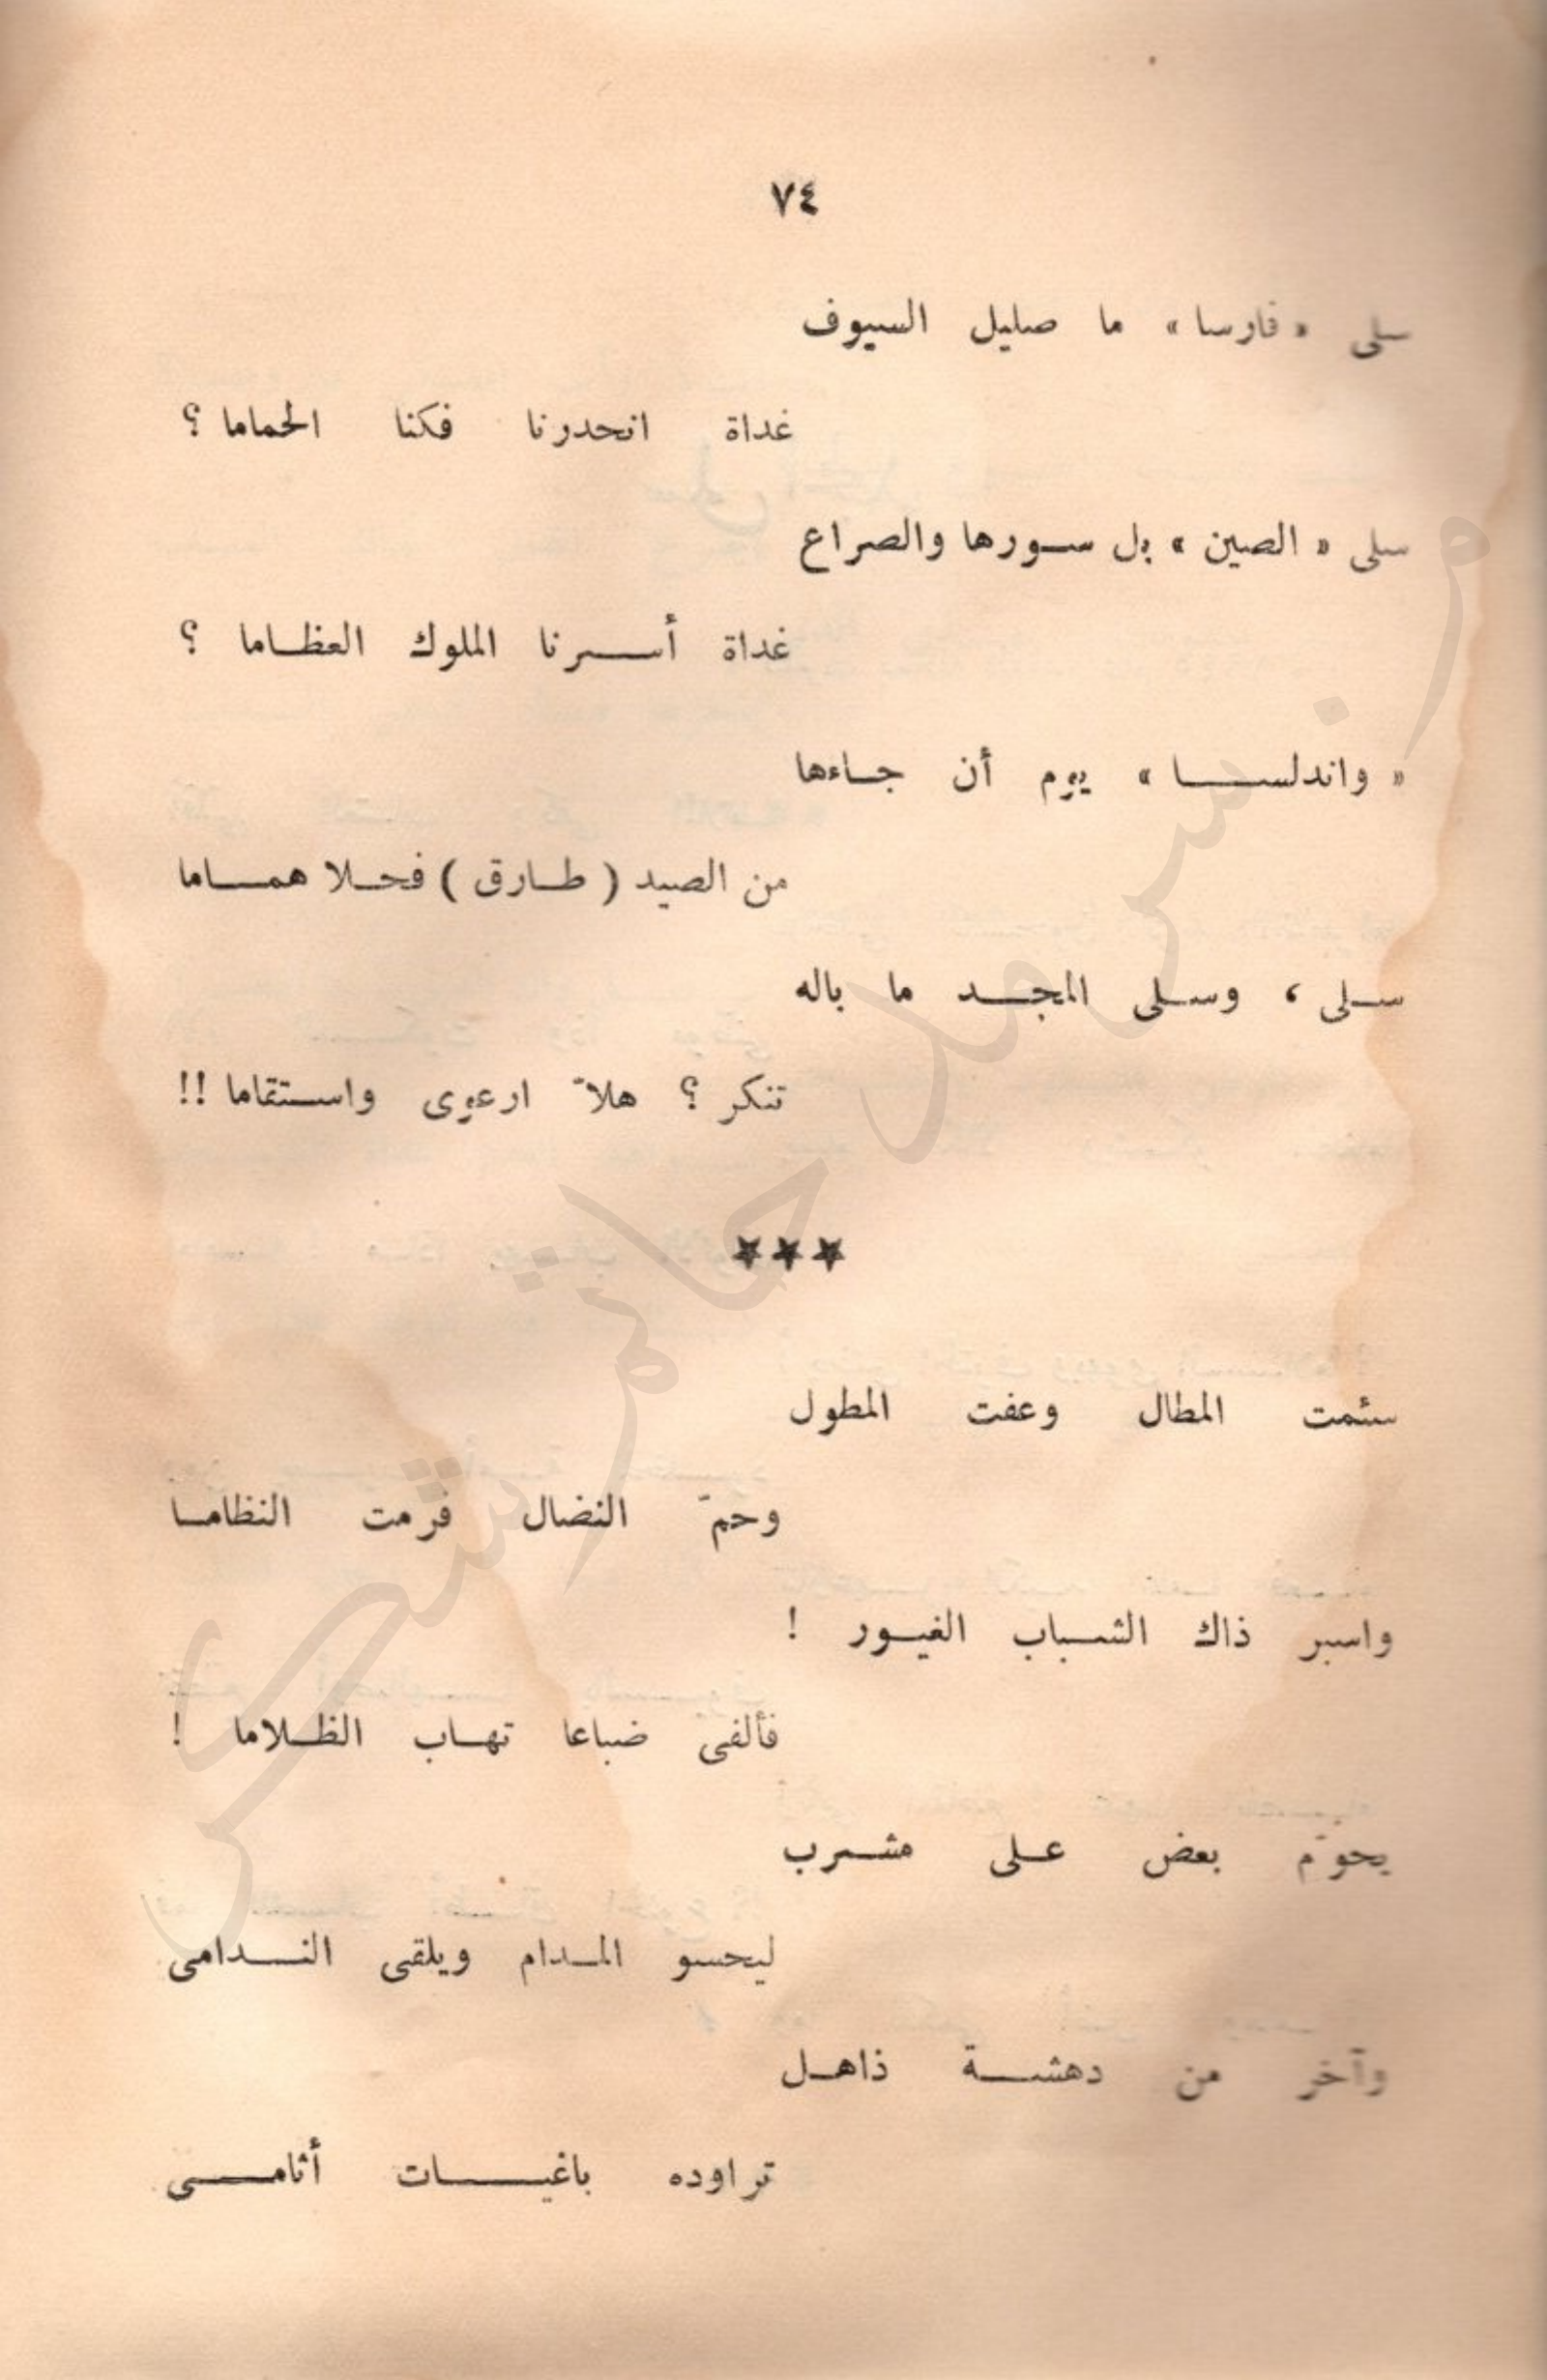 ٧٤
سلى « فارسا » ما صليل السيوف
غداة انحدرنا فكنا الحماما ؟
سلى « الصين » بل سورها والصراع
غداة أسرنا الملوك العظاما ؟
« واندلسا » يوم أن جاءها
من الصيد ( طارق ) فحلا هماما
سلى ، وسلى المجد ما باله
تنكر ؟ هلاّ ارعوى واستقاما !!
★★★
سئمت المطال وعفت المطول
وحمّ النضال فرمت النظاما
واسبر ذاك الشباب الغيور !
فألفى ضباعا تهاب الظلاما !
يحوّم بعض على مشرب
ليحسو المدام ويلقى الندامى
وآخر من دهشة ذاهل
تراوده باغيات أثامى